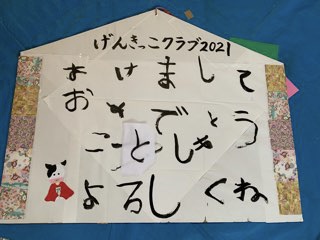 げんきっこクラブ2021
あけまして
おめでとう
ことしも
よろしくね